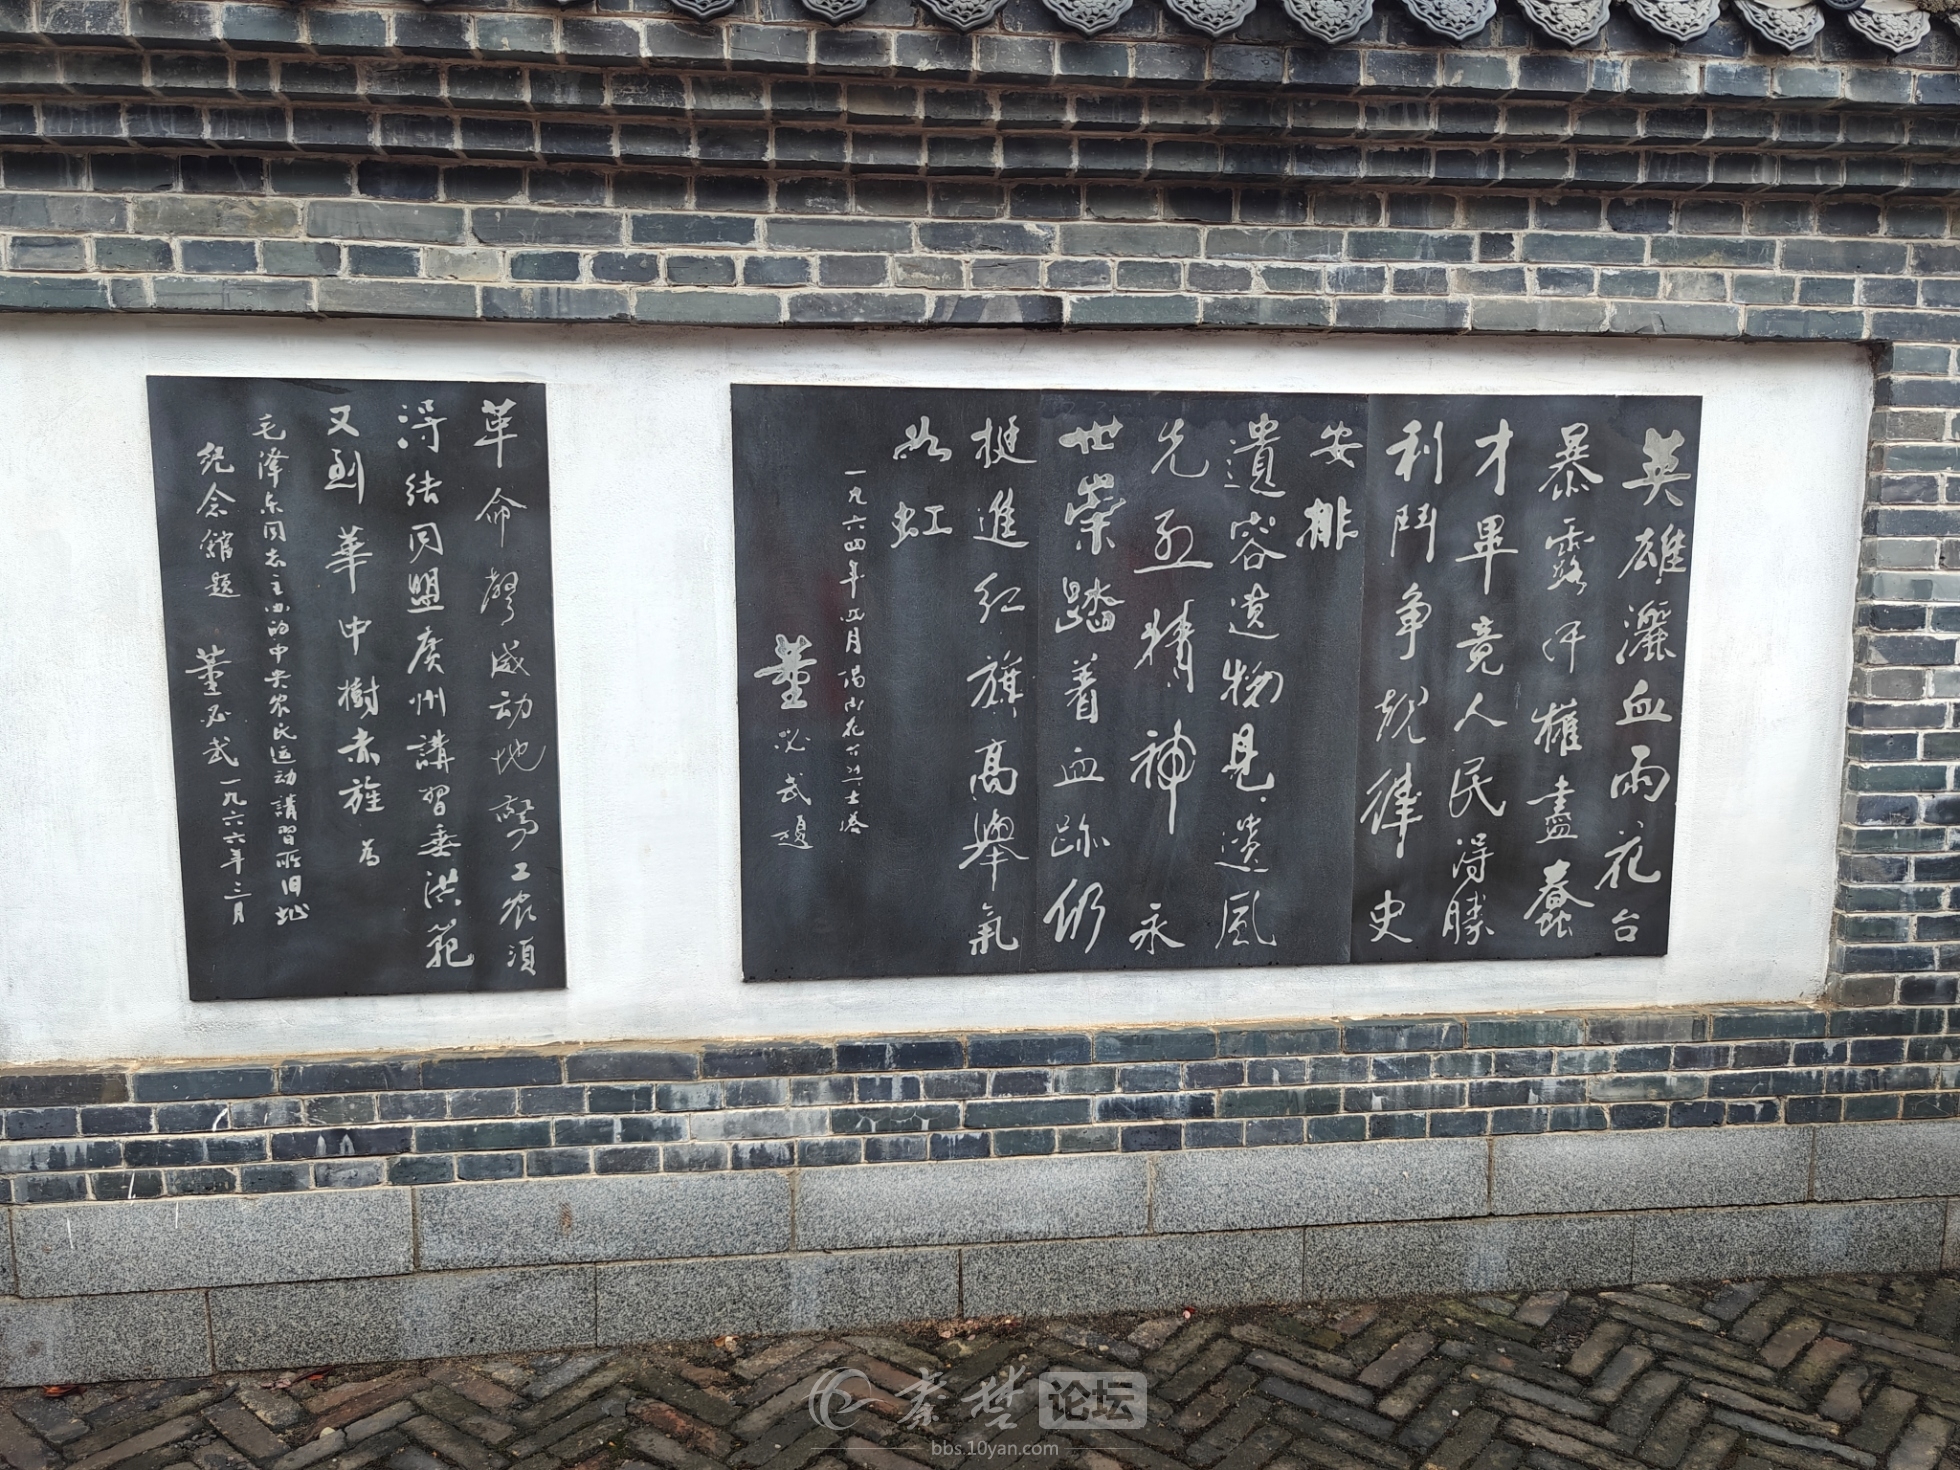 英雄灑血雨花台
暴露奸權盡蠢
才畢竟人民得勝
利鬥爭規律史
安排
遺容遺物見遺風
先烈精神永
世崇踏着血跡仍
挺進紅旗高舉氣
如虹
一九六四年四月謁雨花台烈士塔
董必武題
革命聲威动地驚工农須
得结同盟廣州講習垂洪範
又到華中樹赤旌 為
毛澤东同志主办的中央农民运动講習所旧址
纪念館題 董必武一九六六年三月
秦楚论坛
bbs.10yan.com